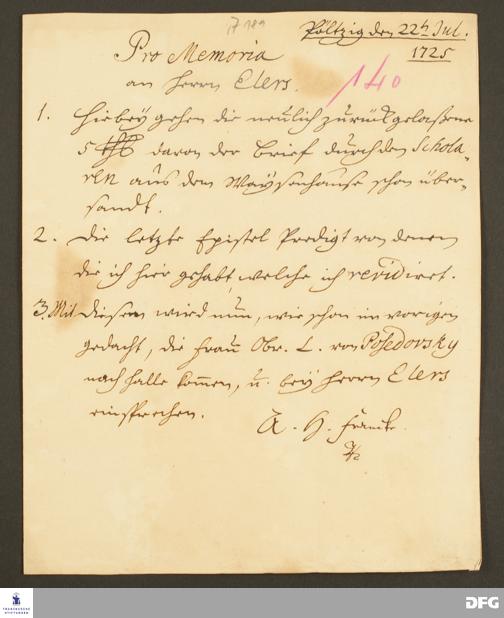 Pöltzig den 22ten Jul.
1725
Pro Memoria
an Herrn Elers.
140
1. Hiebey gehen die neulich zurück gelaßene
5 davon der Brief durch den Schola-
ren aus dem Waysenhause schon über-
sandt.
2. Die letzte Epistel Predigt von denen
die ich hier gehabt, welche ich revidiret.
3. Mit diesem wird nun, wie schon im vorigen
gedacht, die Frau Obr. L. von Posedovsky
nach Halle kommen, u. bey Herrn Elers
einsprechen.
A. H. Francke
FRANCKESCHE
STIFTUNGEN
DFG